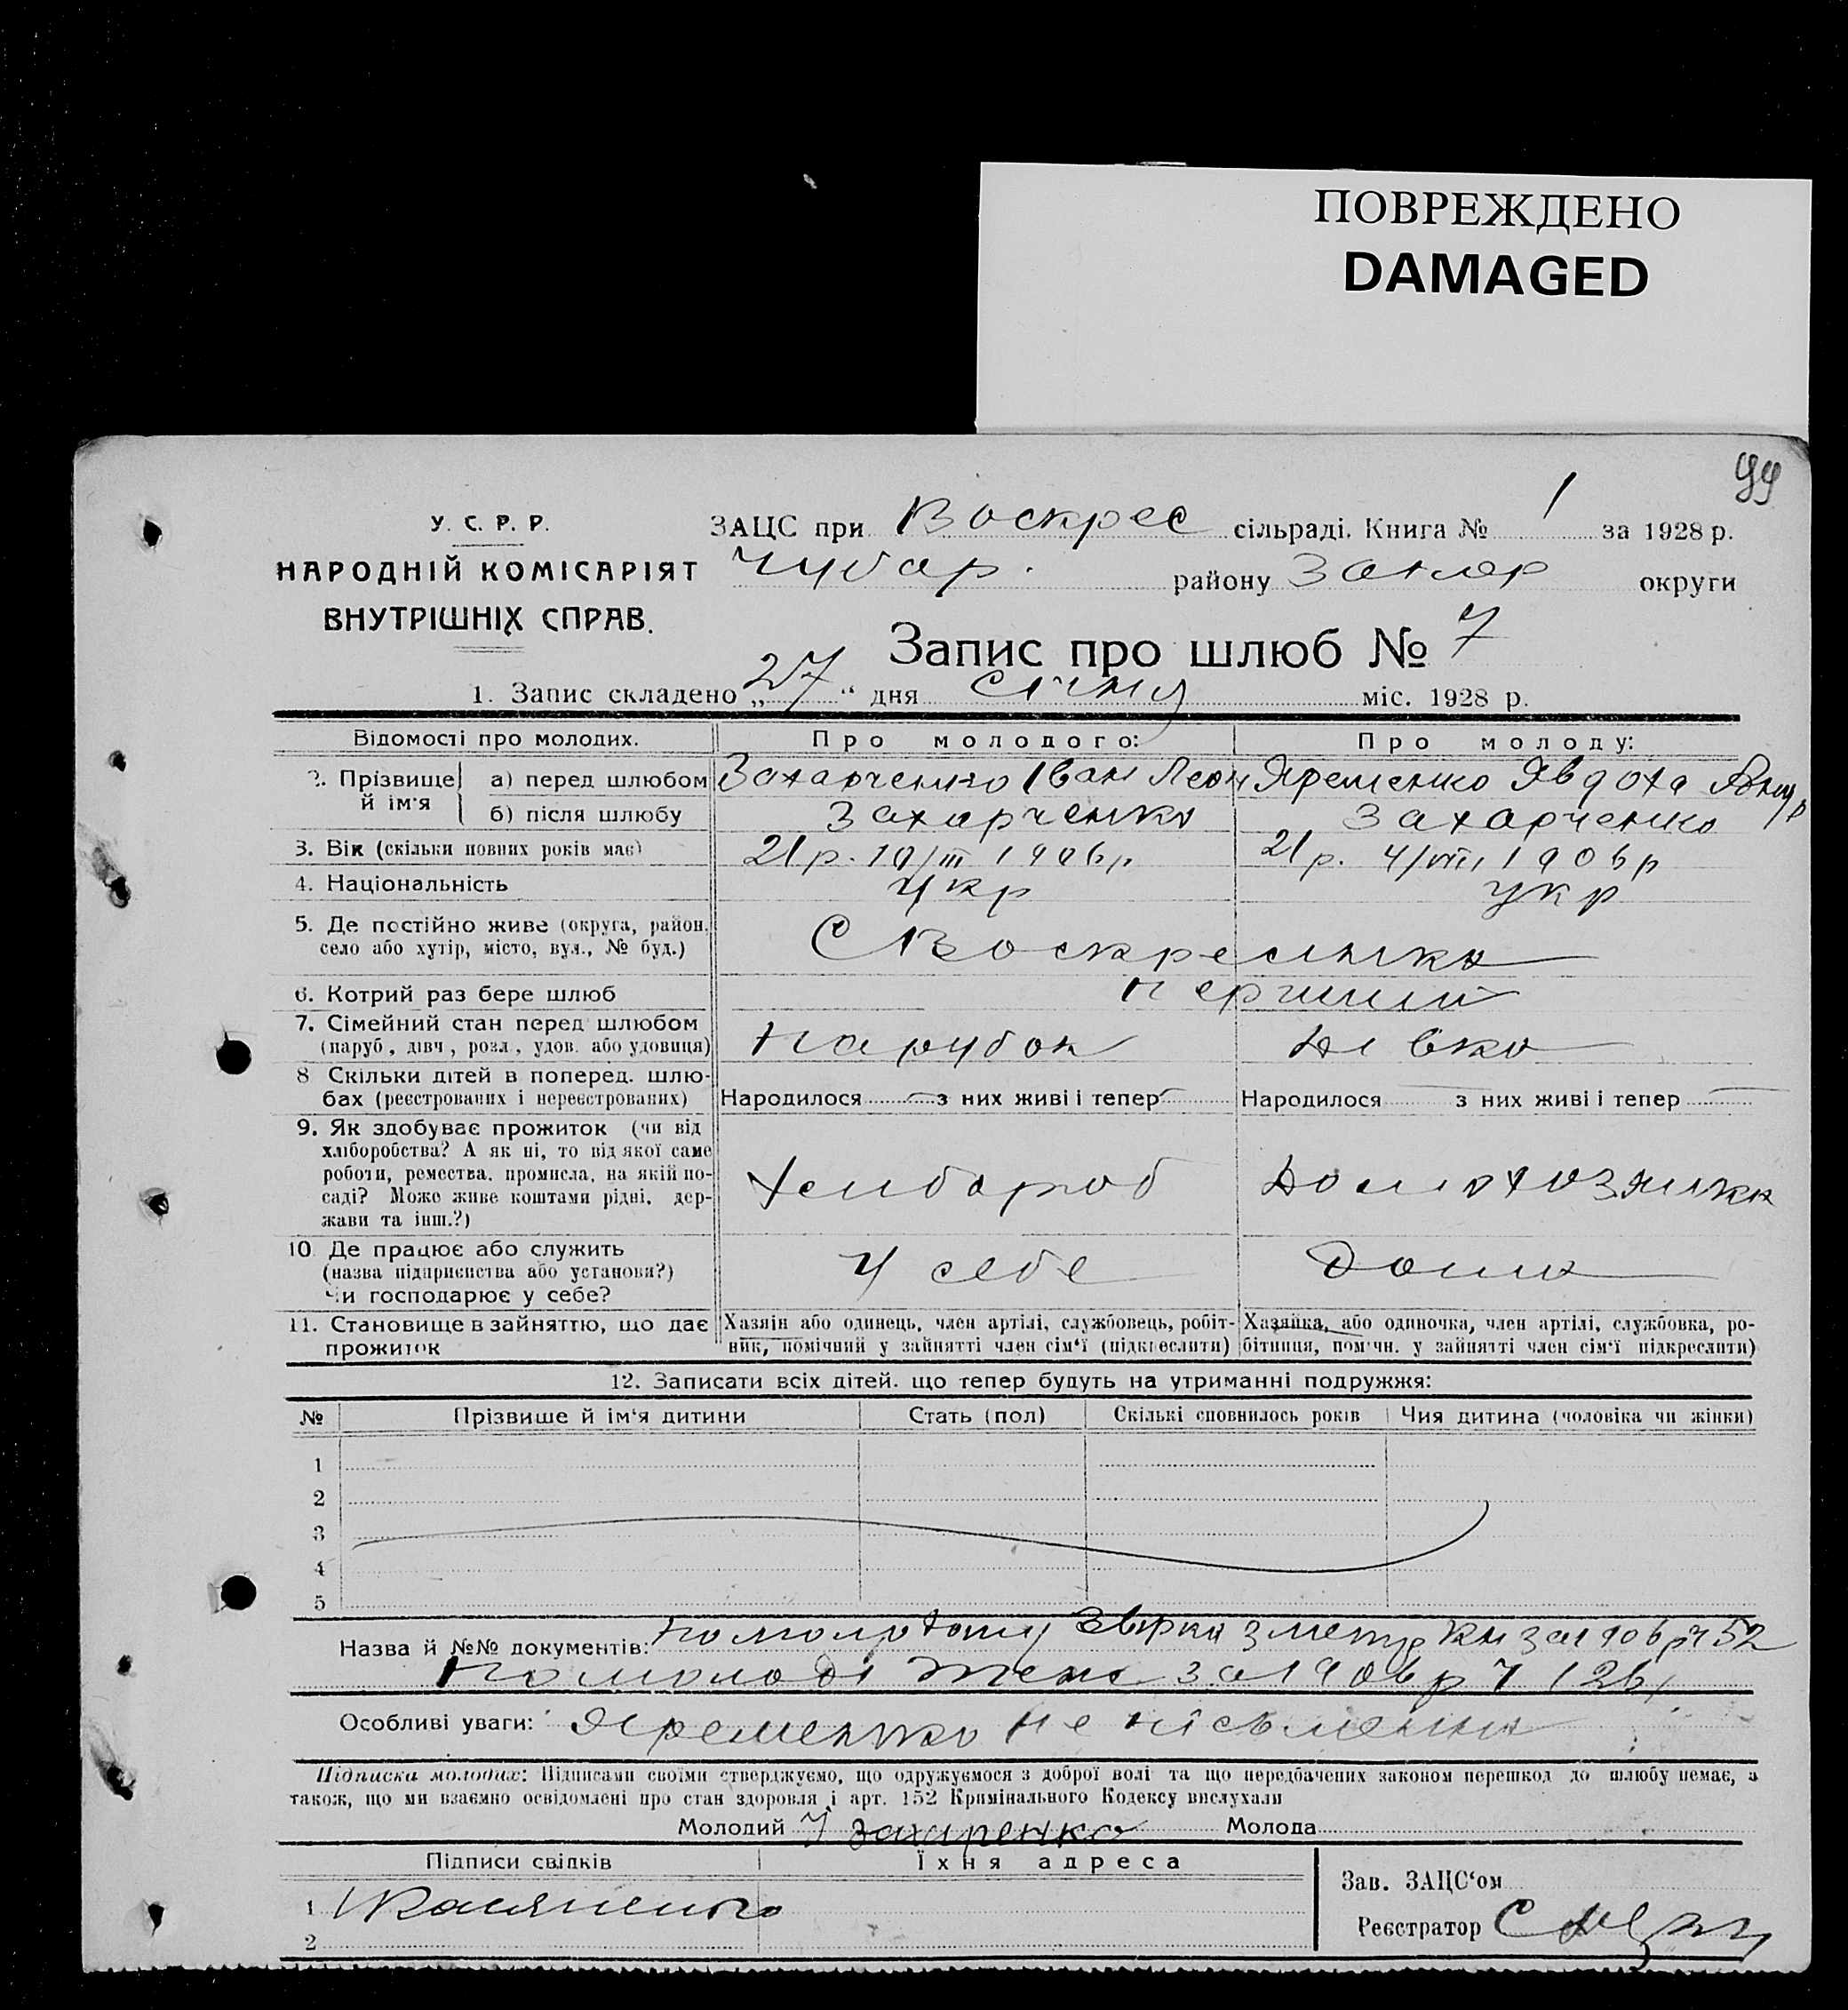 ПОВРЕЖДЕНО
DAMAGED
99
У. С. Р. Р.
НАРОДНІЙ КОМІСАРІЯТ
ВНУТРІШНІХ СПРАВ.
ЗАЦС при Воскрес сільраді. Книга № 1 за 1928 р.
Чубар. району Запор округи
Запис про шлюб № 7
1. Запис складено „27“ дня січня міс. 1928 р.
Відомості про молодих. Про молодого: Про молоду:
2. Прізвище й ім'я а) перед шлюбом Захарченко Іван Леон Яременко Явдоха
б) після шлюбу Захарченко Захарченко
3. Вік (скільки повних років має) 21 р. 10/III 1906 р. 21 р. 4/VIII 1906 р
4. Національність укр укр
5. Де постійно живе (округа, район,
село або хутір, місто, вул., № буд.) С Воскресенка
6. Котрий раз бере шлюб перший
7. Сімейний стан перед шлюбом
(паруб., дівч., розл., удов. або удовиця) Парубок Дівка
8 Скільки дітей в поперед. шлю-
бах (реєстрованих і нереєстрованих) Народилося — з них живі і тепер — Народилося — з них живі і тепер —
9. Як здобуває прожиток (чи від
хліборобства? А як ні, то від якої саме
роботи, ремества, промисла, на якій по-
саді? Може живе коштами рідні, дер-
жави та інш.?) Хлибороб Домохозяйка
10 Де працює або служить
(назва підприємства або установи?)
Чи господарює у себе? У себе Дома
11. Становище в зайняттю, що дає
прожиток
Хазяїн або одинець, член артілі, службовець, робіт-
ник, помічний у зайнятті член сім'ї (підкреслити)
Хазяйка, або одиночка, член артілі, службовка, ро-
бітниця, поміч. у зайнятті член сім'ї підкреслити)
12. Записати всіх дітей, що тепер будуть на утриманні подружжя:
№ Прізвище й ім'я дитини Стать (пол) Скількі сповнилось років Чия дитина (чоловіка чи жінки)
1
2
3
4
5
Назва й №№ документів: по молодому з метр Кн за 1906 р ч 52
по молоді за 1906 р ч 126
Особливі уваги: Яременко не письменна
Підписка молодих: Підписами своїми стверджуємо, що одружуємося з доброї волі та що передбачених законом перешкод до шлюбу немає, а
також, що ми взаємно освідомлені про стан здоров'я і арт. 152 Кримінального Кодексу вислухали
Молодий І Захаренко Молода
Підписи свідків Їхня адреса
1 Касяненко
2
Зав. ЗАЦС'ом
Реєстратор